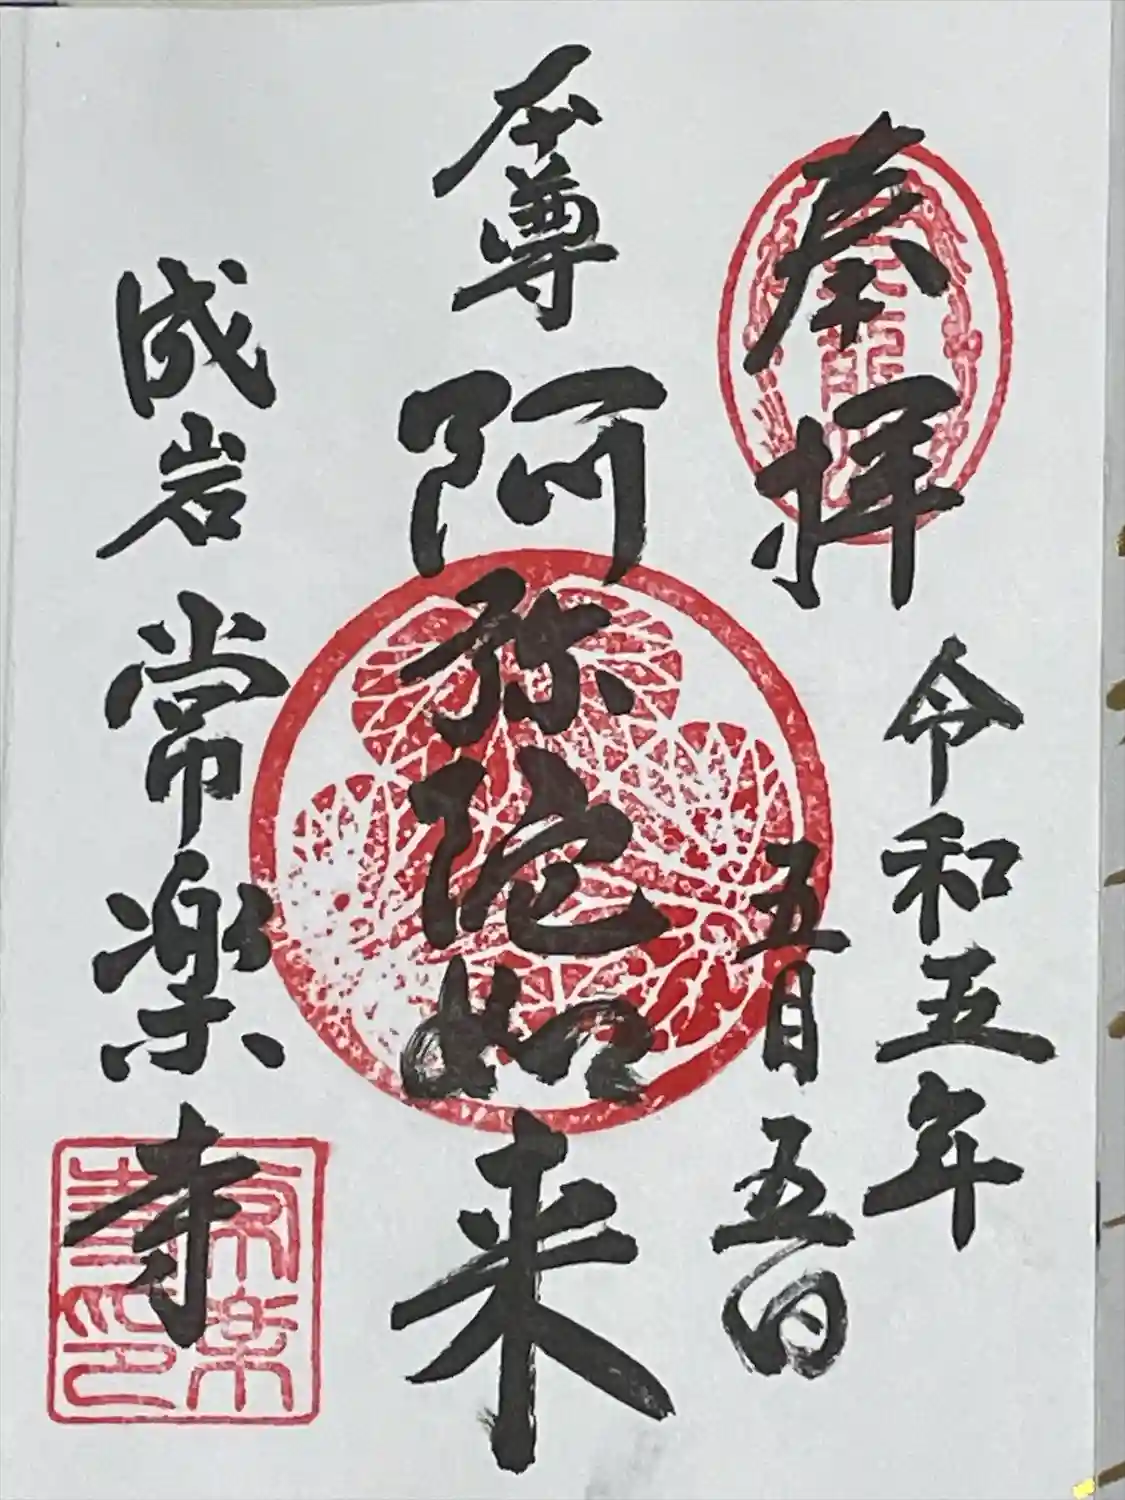 奉拝
令和五年
五月五日
本尊
阿弥陀如来
成岩
常楽寺
常楽寺印